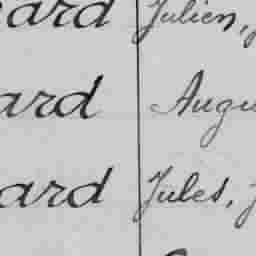 ard Julien,
ard Augu
ard Jules,